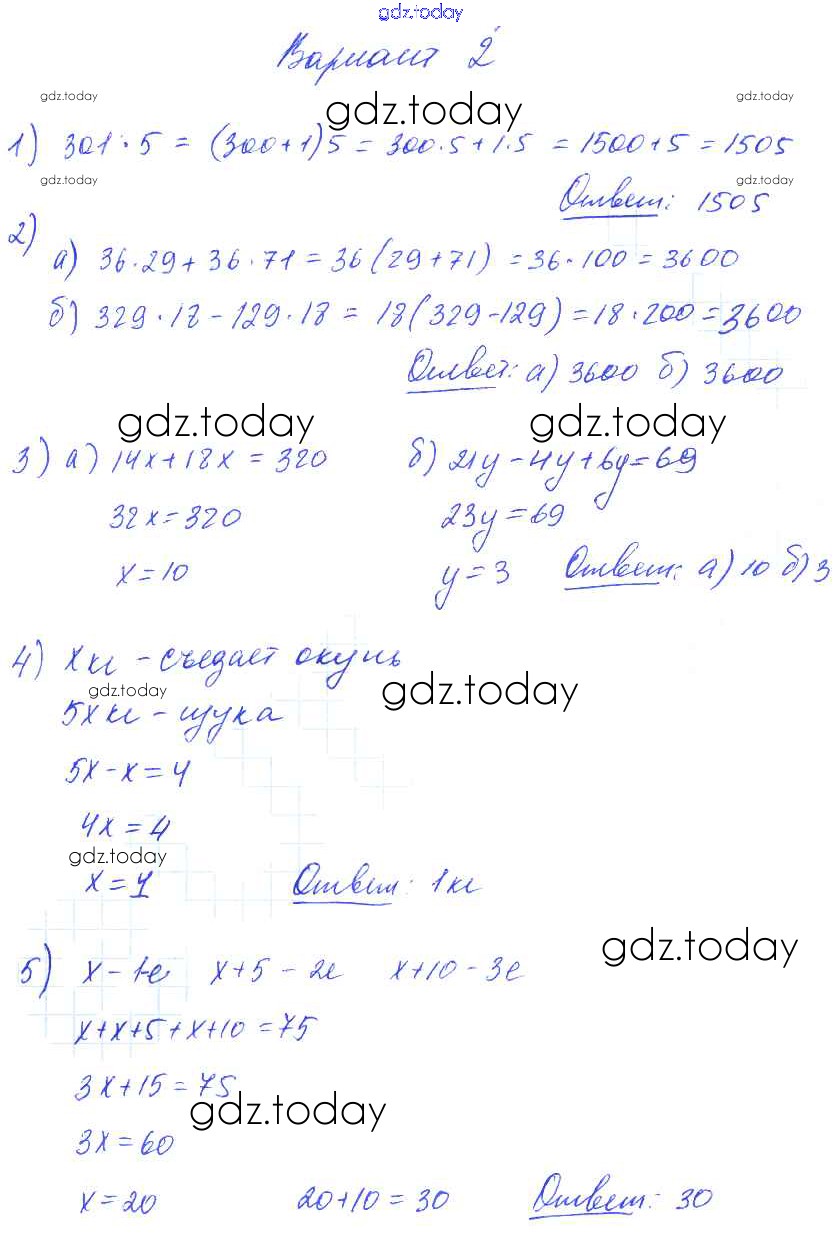 gdz.today
Вариант 2
gdz.today gdz.today gdz.today
1) 301 · 5 = (300+1)5 = 300·5+1·5 = 1500+5 = 1505
gdz.today gdz.today
Ответ: 1505
2)
а) 36·29+36·71 = 36(29+71) = 36·100 = 3600
б) 329·18-129·18 = 18(329-129) = 18·200 = 3600
Ответ: а) 3600 б) 3600
gdz.today gdz.today
3) а) 14x+18x = 320 б) 21y-4y+6y=69
32x=320 23y=69
x=10 y=3 Ответ: а) 10 б) 3
4) x кг - съедает окунь
gdz.today gdz.today
5x кг - щука
5x-x=4
4x=4
gdz.today
x=1 Ответ: 1кг
gdz.today
5) x - 1-е x+5 - 2е x+10 - 3е
x+x+5+x+10=75
3x+15=75
gdz.today
3x=60
x=20 20+10=30 Ответ: 30